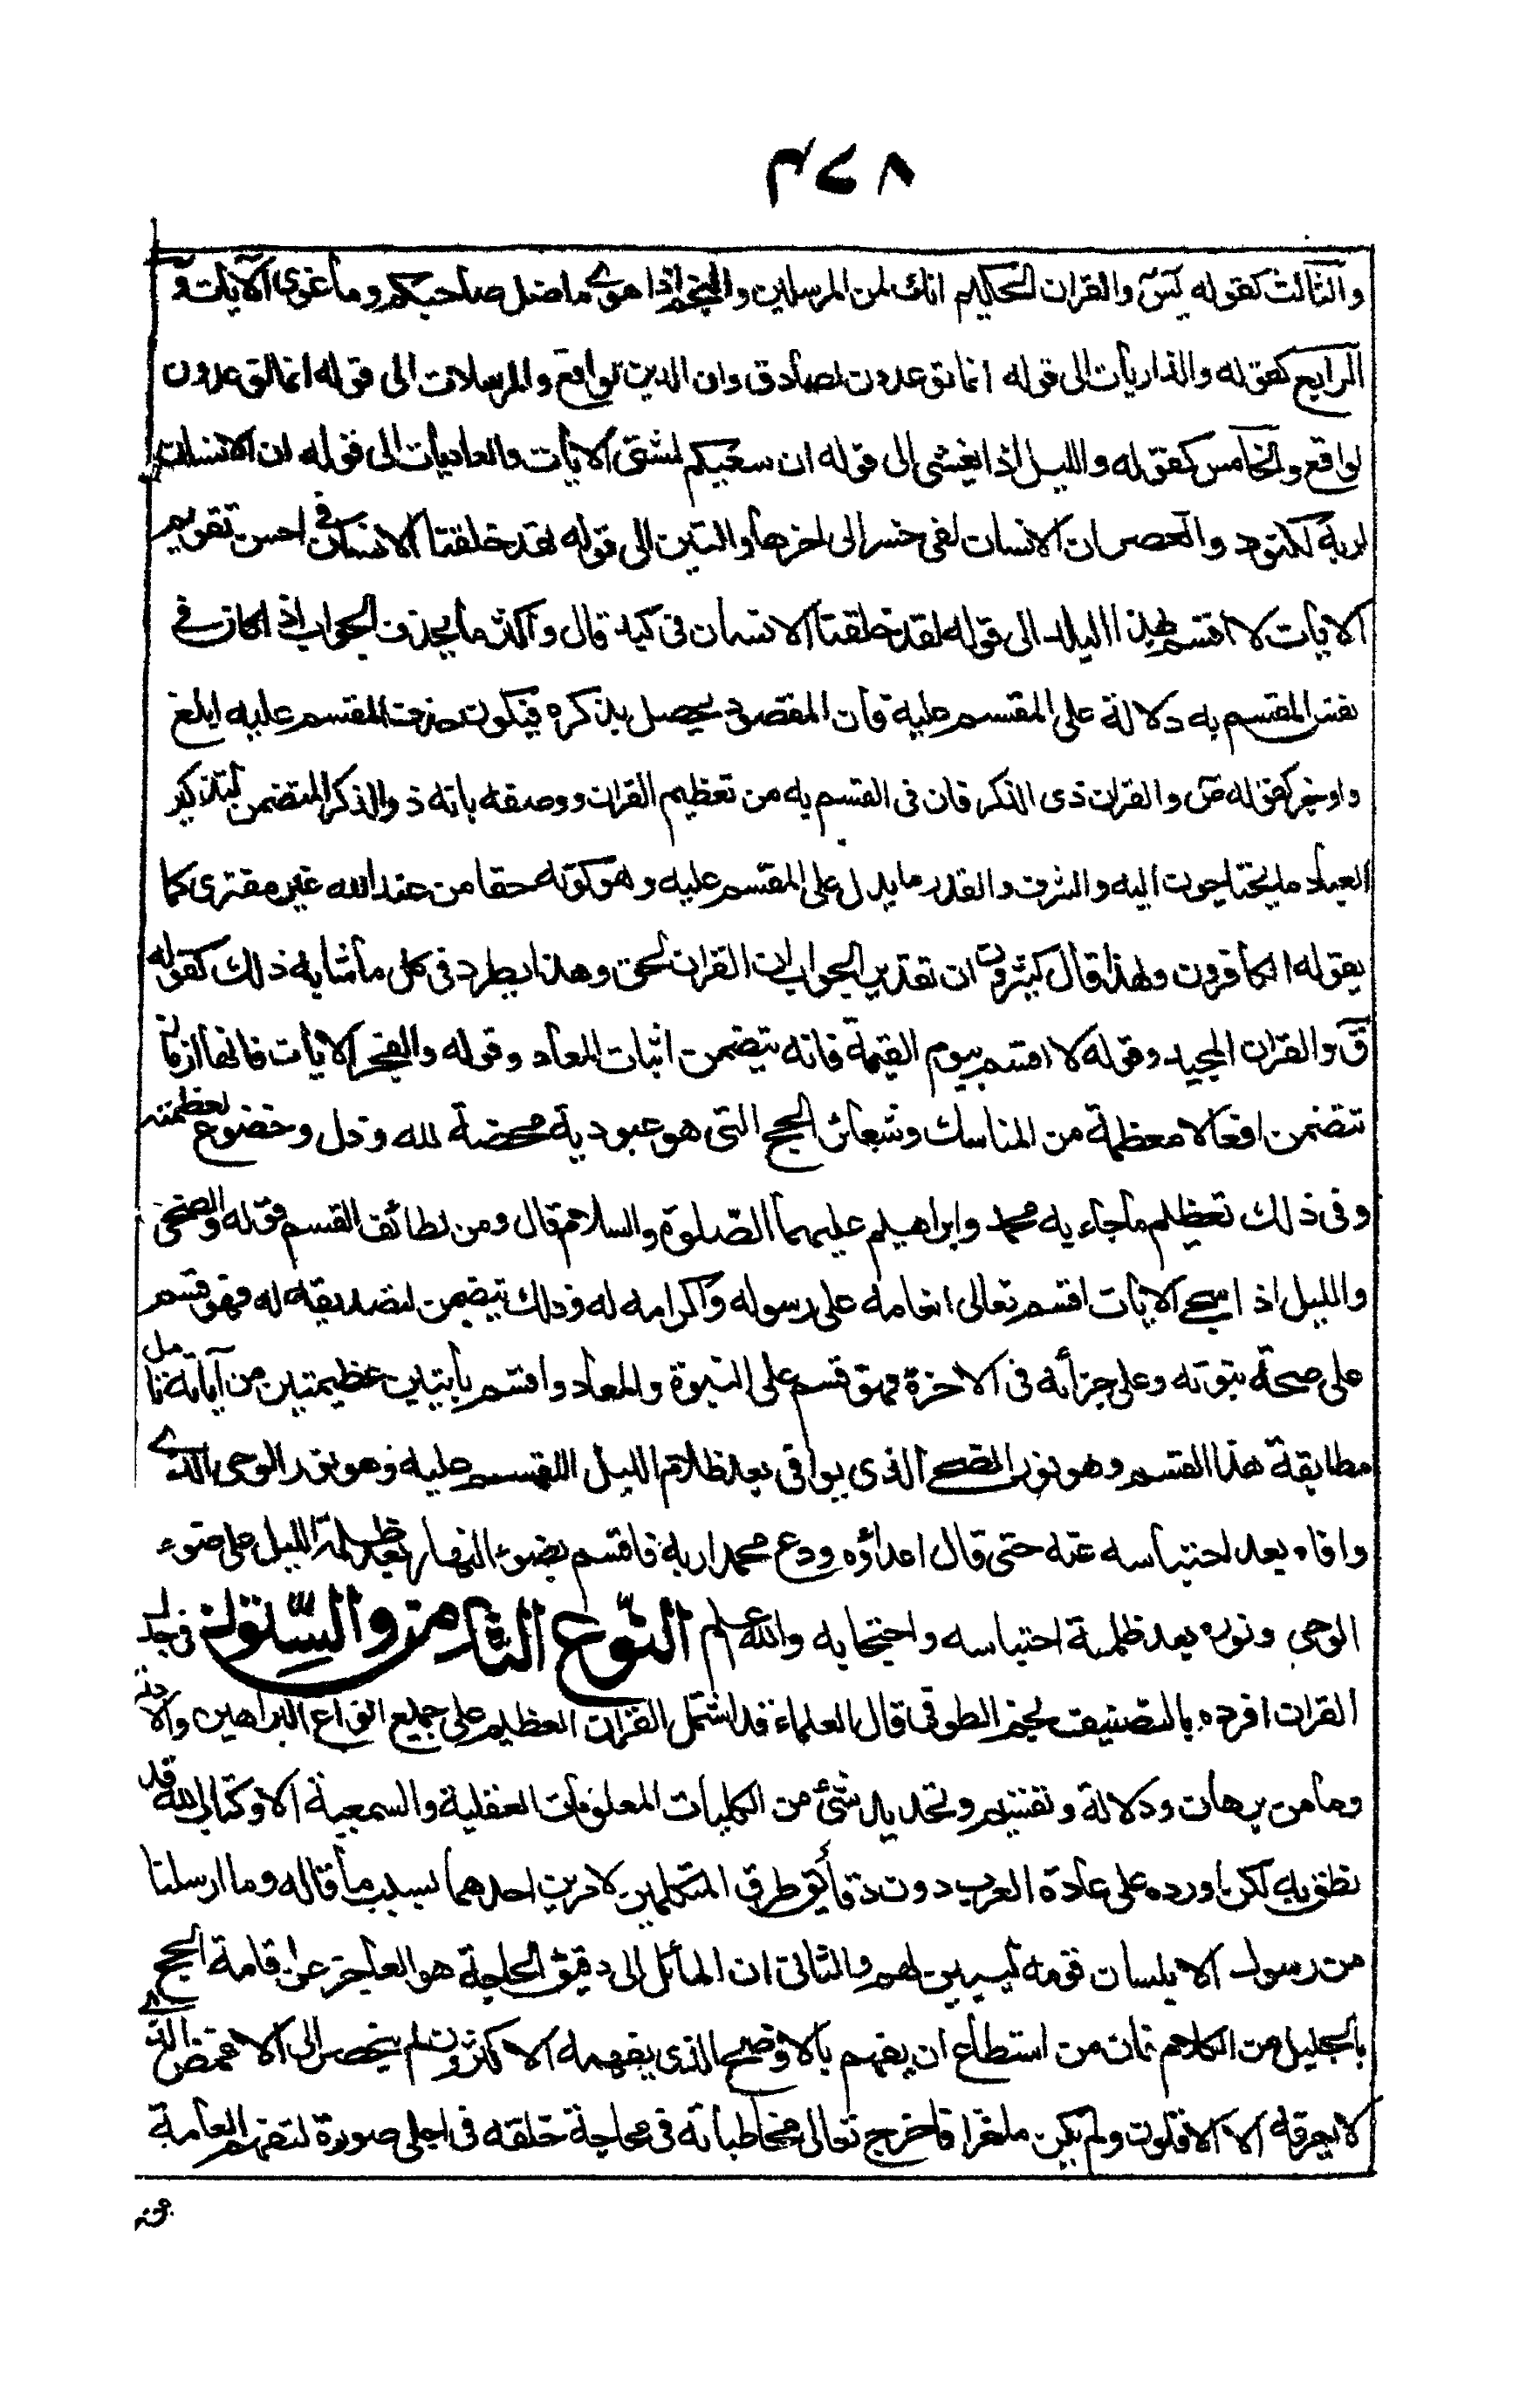 ٣٧٨
والثالث كقوله يس والقران الحكيم انك لمن المرسلين والنجم اذا هوى ما ضل صاحبكم وما غوى الآيات و
الرابع كقوله والذاريات الى قوله انما توعدون لصادق وان الدين لواقع والمرسلات الى قوله انما توعدون
لواقع والخامس كقوله والليل اذا يغشى الى قوله ان سعيكم لشتى الايات والعاديات الى قوله ان الانسان
لربه لكنود والعصر ان الانسان لفى خسر الى اخرها والتين الى قوله لقد خلقنا الانسان فى احسن تقويم
الايات لا اقسم بهذا البلد الى قوله لقد خلقنا الانسان فى كبد قال واكثر ما يحذف الجواب اذا كان فى
نفس المقسم به دلالة على المقسم عليه فان المقصود يحصل بذكره فيكون حذف المقسم عليه ابلغ
واوجز كقوله ص والقران ذى الذكر فان فى القسم به من تعظيم القران ووصفه بانه ذو الذكر المتضمن لتذكير
العباد ما يحتاجون اليه والشرف والقدر ما يدل على المقسم عليه وهو كونه حقا من عند الله غير مفترى كما
يقوله الكافرون ولهذا قال كثيرون ان تقدير الجواب ان القران لحق وهذا يطرد فى كل ما شابه ذلك كقوله
ق والقران المجيد وقوله لا اقسم بيوم القيمة فانه يتضمن اثبات المعاد وقوله والفجر الايات فانها ازمان
تتضمن افعالا معظمة من المناسك وشعائر الحج التى هو عبودية محضة لله وذل وخضوع لعظمته
وفى ذلك تعظيم ما جاء به محمد وابراهيم عليهما الصلوة والسلام قال ومن لطائف القسم قوله والضحى
والليل اذا سجى الايات اقسم تعالى انعامه على رسوله واكرامه له وذلك يتضمن لتصديقه له فهو قسم
على صحة نبوته وعلى جزائه فى الاخرة فهو قسم على النبوة والمعاد واقسم بآيتين عظيمتين من آياته تامل
مطابقة هذا القسم وهو نور الضحى الذى يوافى بعد ظلام الليل المقسم عليه وهو نور الوحى الذى
وافاه بعد احتباسه عنه حتى قال اعداؤه ودع محمدا ربه فاقسم بضوء النهار بعد ظلمة الليل على ضوء
الوحى ونوره بعد ظلمة احتباسه واحتجابه والله اعلم النوع الثامن والستون فى جدل
القران افرده بالتصنيف نجم الطوفى قال العلماء قد اشتمل القران العظيم على جميع انواع البراهين والادلة
وما من برهان ودلالة وتقسيم وتحديد شئ من الكليات المعلومات العقلية والسمعية الا وكتاب الله قد
نطق به لكن اورده على عادة العرب دون دقائق طرق المتكلمين لامرين احدهما بسبب ما قاله وما ارسلنا
من رسول الا بلسان قومه ليبين لهم والثانى ان المائل الى دقيق المحاجة هو العاجز عن اقامة الحجج
بالجليل من الكلام فان من استطاع ان يفهم بالاوضح الذى يفهمه الاكثرون لم ينحصر الى الاغمض الذى
لا يعرفه الا الاقلون ولم يكن ملغزا فاخرج تعالى مخاطباته فى محاجة خلقه فى اجلى صورة لتفهم العامة